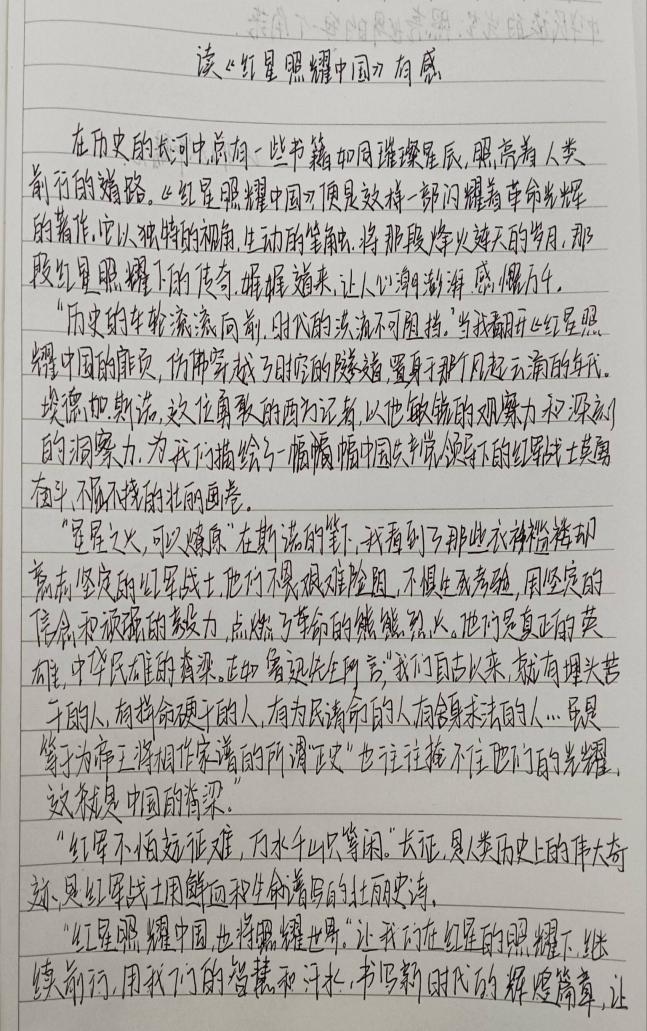 中华民族的光芒,照亮世界的每一个角落.
读《红星照耀中国》有感
在历史的长河中,总有一些书籍如同璀璨星辰,照亮着人类
前行的道路。《红星照耀中国》便是这样一部闪耀着革命光辉
的著作,它以独特的视角,生动的笔触,将那段烽火连天的岁月,那
段红星照耀下的传奇,娓娓道来,让人心潮澎湃,感慨万千.
"历史的车轮滚滚向前,时代的洪流不可阻挡."当我翻开《红星照
耀中国的扉页,仿佛穿越了时空的隧道,置身于那个风起云涌的年代。
埃德加.斯诺,这位勇敢的西方记者,以他敏锐的观察力和深刻
的洞察力,为我们描绘了一幅幅中国共产党领导下的红军战士英勇
奋斗、不屈不挠的壮丽画卷。
"星星之火,可以燎原"在斯诺的笔下,我看到了那些衣衫褴褛却
意志坚定的红军战士,他们不畏艰难险阻,不惧生死考验,用坚定的
信念和顽强的毅力,点燃了革命的熊熊烈火。他们是真正的英
雄,中华民雄的脊梁。正如鲁迅先生所言,"我们自古以来,就有埋头苦
干的人,有拼命硬干的人,有为民请命的人,有舍身求法的人…虽是
等于为帝王将相作家谱的所谓"正史"也往往掩不住他们的光耀,
这就是中国的脊梁."
"红军不怕远征难,万水千山只等闲."长征,是人类历史上的伟大奇
迹,是红军战士用鲜血和生命谱写的壮丽史诗.
"红星照耀中国,也将照耀世界."让我们在红星的照耀下,继
续前行,用我们的智慧和汗水,书写新时代的辉煌篇章,让